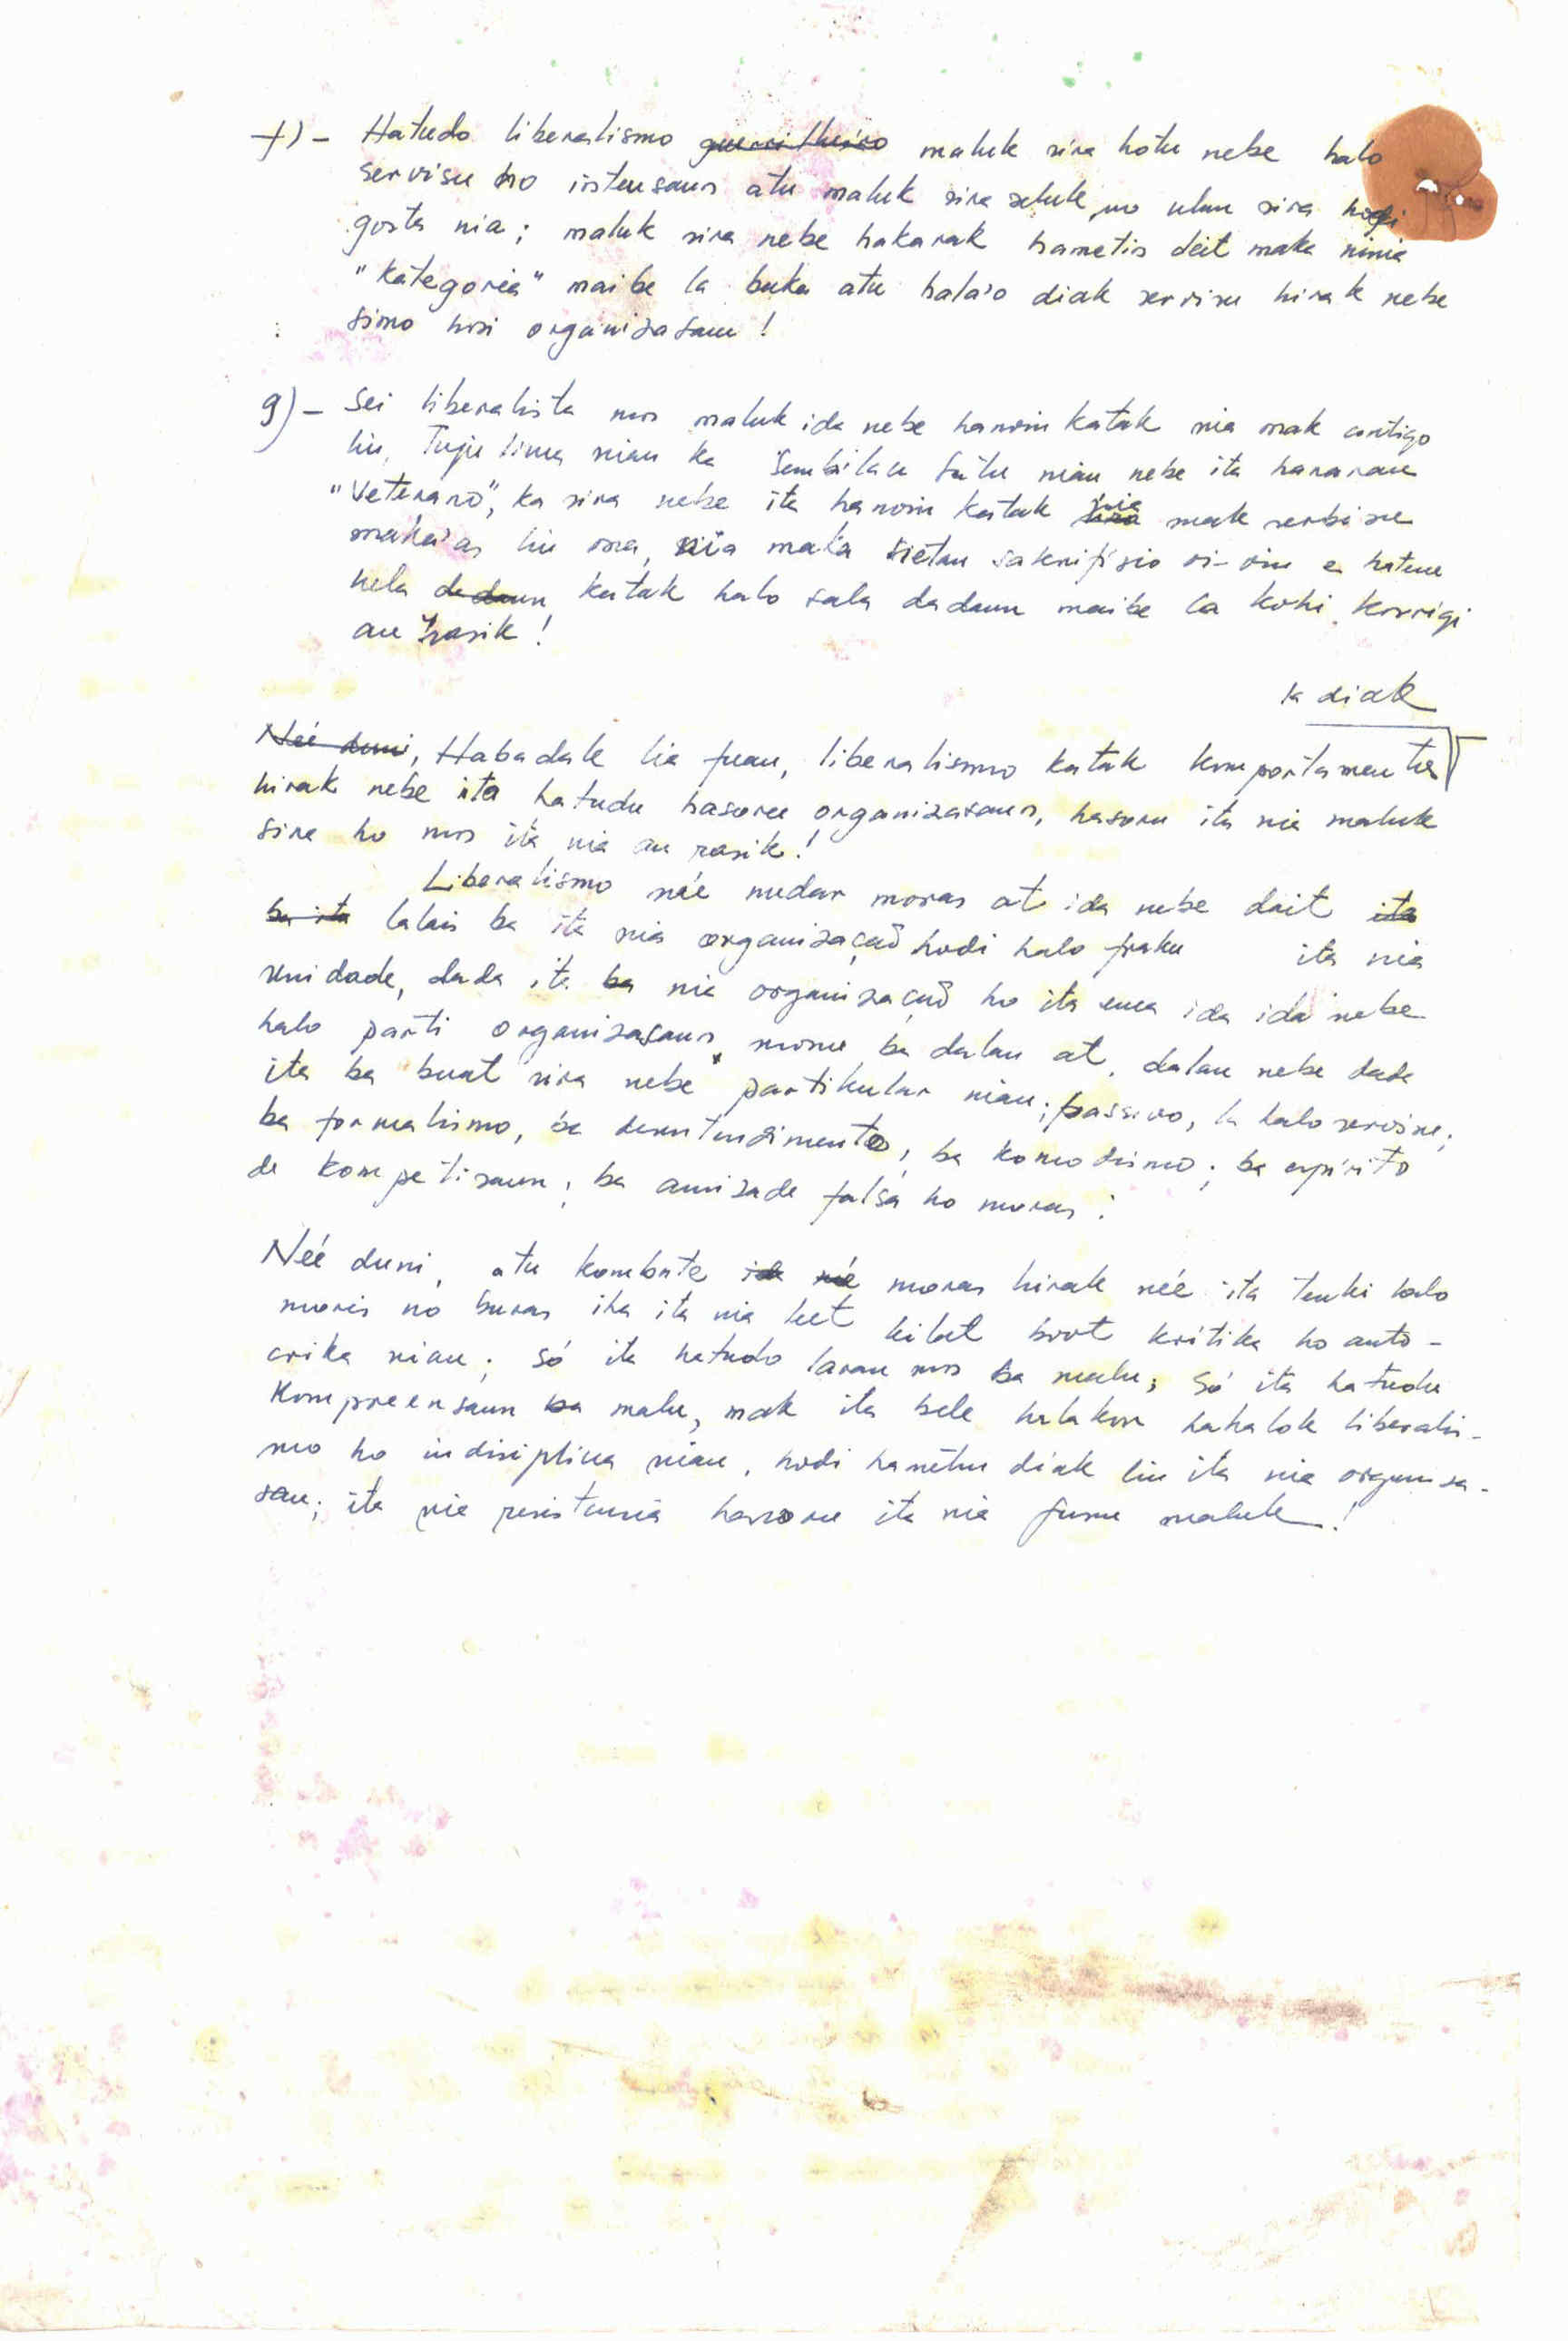 f) - Hatudo liberalismo guerrilheiro maluk sira hotu nebe halo
servisu ho intensaun atu maluk sira seluk no ulun sira hodi
gosta nia; maluk sira nebe hakarak hametin deit maka ninia
"kategoria" maibe la buka atu hala'o diak servisu hirak nebe
simo husi organizasaun!
g) - Sei liberalista mos maluk ida nebe hanoin katak nia mak antigo
liu, Tuju lima nian ka Sembilan Satu nian nebe ita hanaran
"Veterano", ka sira nebe ita hanoin katak nia mak serbisu
maka'as liu ona, nia maka hetan sakrifisio oi-oin e hatene
nela dadaun katak halo sala dadaun maibe la kohi korrigi
an rasik!
la diak
Neé duni, Habadak lia fuan, liberalismo katak komportamentu
hirak nebe ita hatudu hasoru organizasaun, hasoru ita nia maluk
sira ho mos ita nia an rasik!
Liberalismo neé nudar moras at ida nebe dait ita
ba ita lalais ba ita nia organizaçaõ hodi halo fraku ita nia
unidade, dada ita ba nia organizaçaõ ho ita ema ida ida nebe
halo parti organizasaun, monu ba dalan at, dalan nebe dada
ita ba buat sira nebe partikular nian; passivo, la halo servisu;
ba formalismo, ba desentendimento, ba komodismo; ba espirito
de kompetisaun; ba amizade falsa ho moras!
Neé duni, atu kombate ida neé moras hirak neé ita tenki halo
moris no buras iha ita nia leet kilat boot krítika ho auto-
crika nian; Só ita hatudo laran mos ba malu; Só ita hatudu
kompreensaun ba malu, mak ita bele halakon hahalok liberalis-
mo ho indisiplina nian, hodi hametin diak liu ita nia organisa-
sau; ita nia resistensia hasoru ita nia funu maluk!